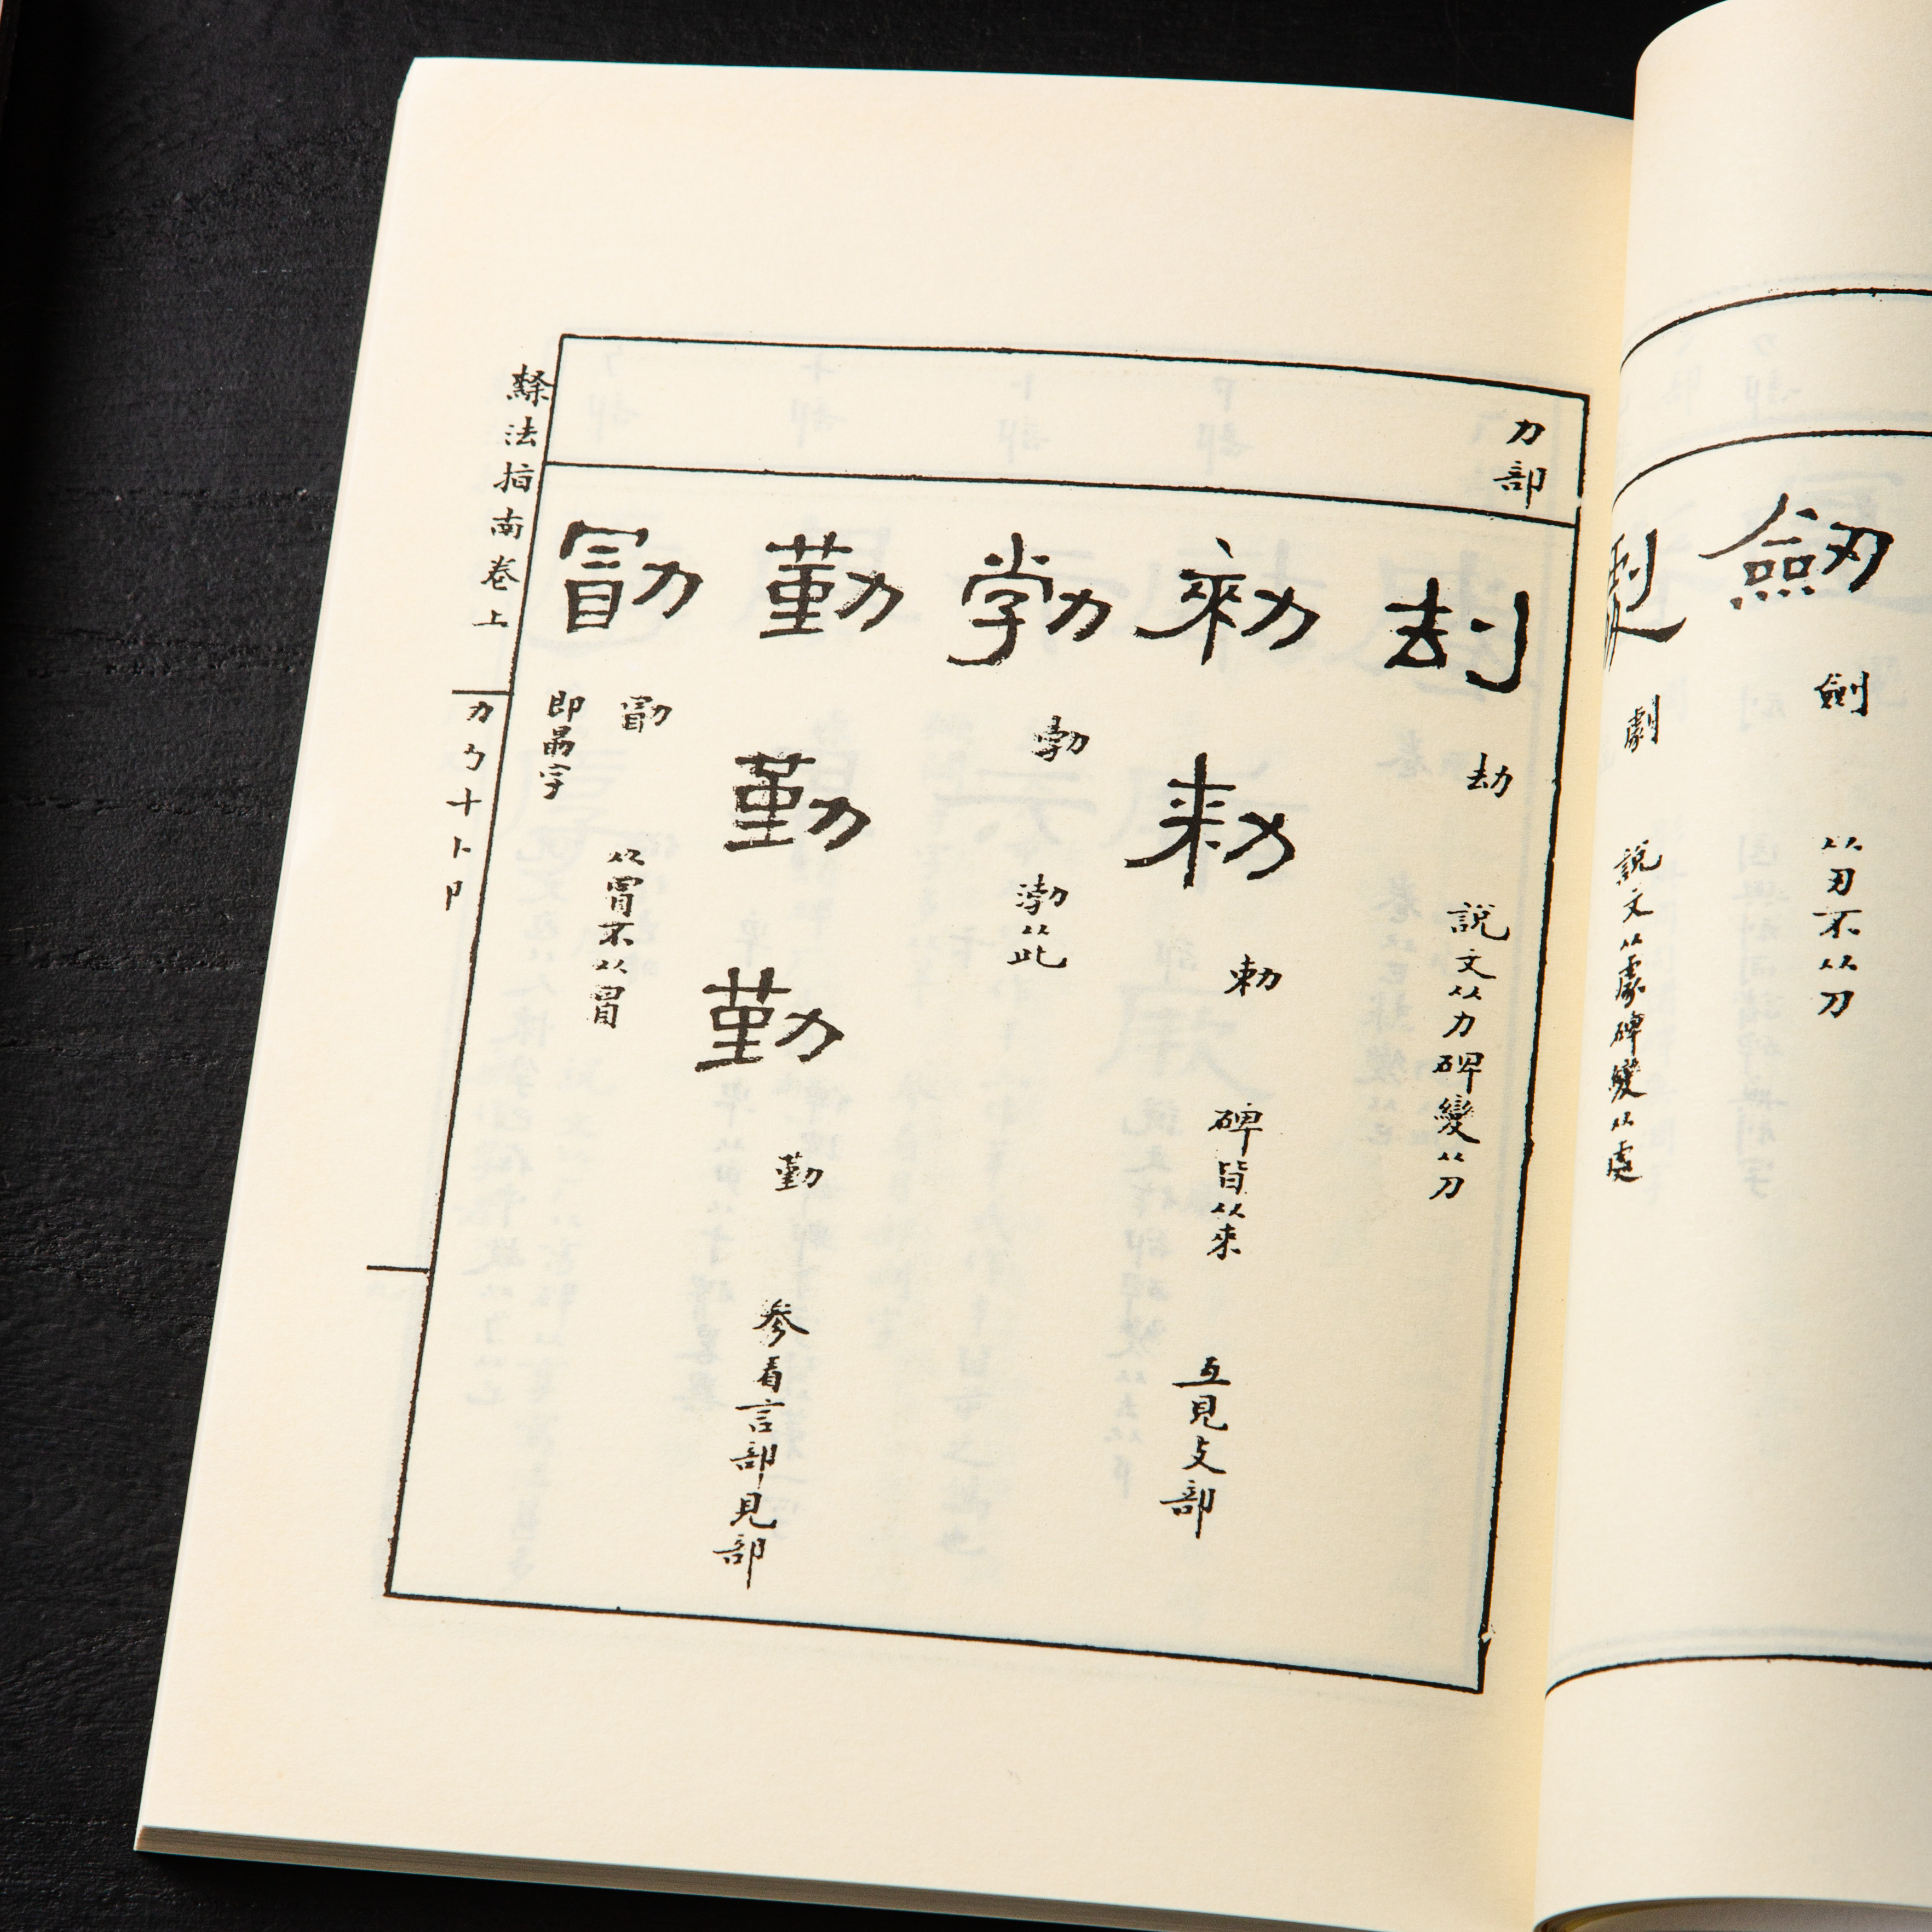 劒
劍
从刃不从刀
劇
說文从豦碑變从處
力部
刦
劫
說文从力碑變从刀
勑
勅
勅
碑皆从來
互見攴部
勃
勃
渤从此
勤
勤
勤
勤
參看言部見部
勖
勖
从冐不从冒
即勗字
隸法指南卷上
力勹十卜卩